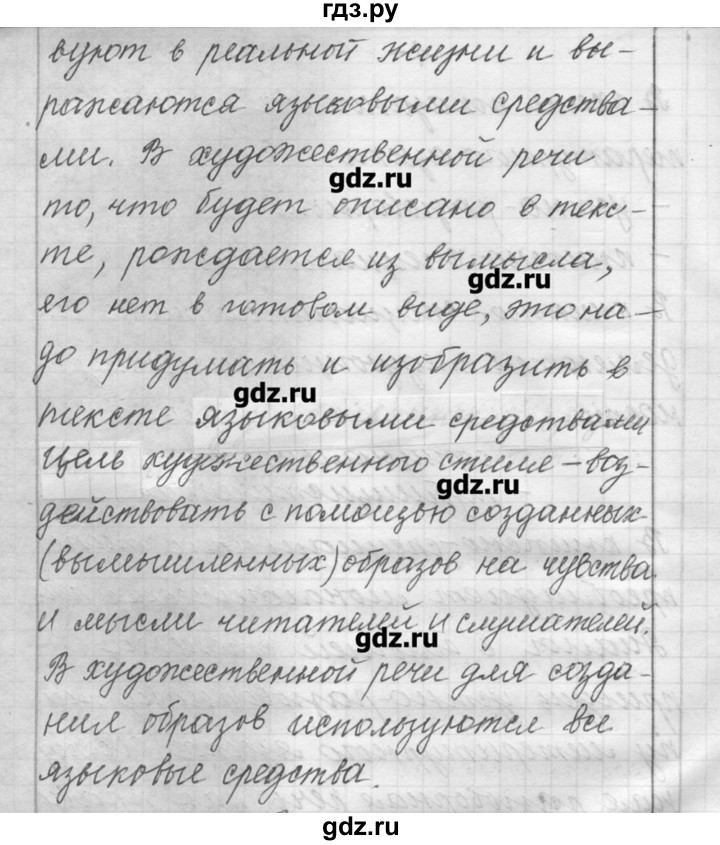 гдз.ру
вуют в реальной жизни и вы-
ражаются языковыми средства-
ми. В художественной речи
gdz.ru
то, что будет описано в текс-
те, рождается из вымысла,
gdz.ru
его нет в готовом виде, это на-
до придумать и изобразить в
gdz.ru
тексте языковыми средствами
Цель художественного стиля – воз-
gdz.ru
действовать с помощью созданных
(вымышленных) образов на чувства
и мысли читателей и слушателей.
gdz.ru
В художественной речи для созда-
ния образов используются все
языковые средства.
gdz.ru